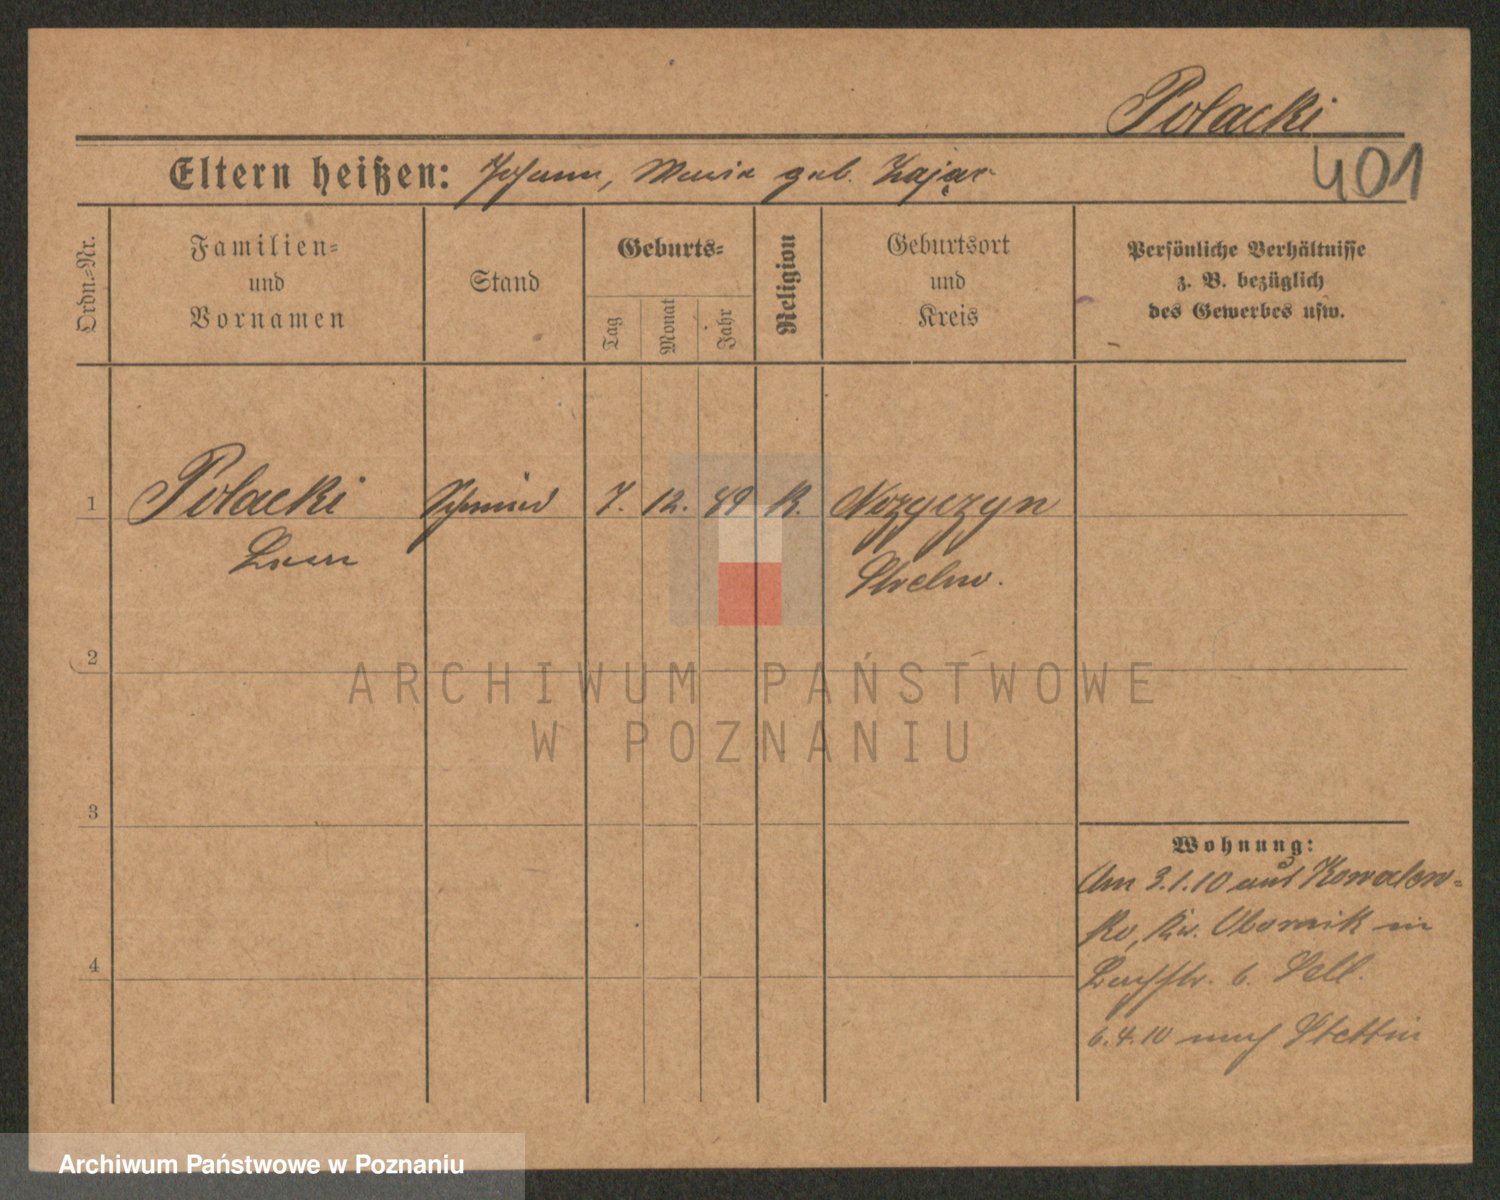 Polacki
401
Eltern heißen: Johann, Maria geb. Zając
Ordn.=Nr.
Familien=
und
Vornamen
Stand
Geburts=
Tag
Monat
Jahr
Religion
Geburtsort
und
Kreis
Persönliche Verhältnisse
z. B. bezüglich
des Gewerbes usw.
1 Polacki Schmied 7. 12. 89 K. Nozyczyn
Strelno.
2
3
4
Wohnung:
Am 3.1.10 aus Kowalew=
ko, Kr. Obornik in
6.
6.4.10 nach Stettin
ARCHIWUM PAŃSTWOWE
W POZNANIU
Archiwum Państwowe w Poznaniu